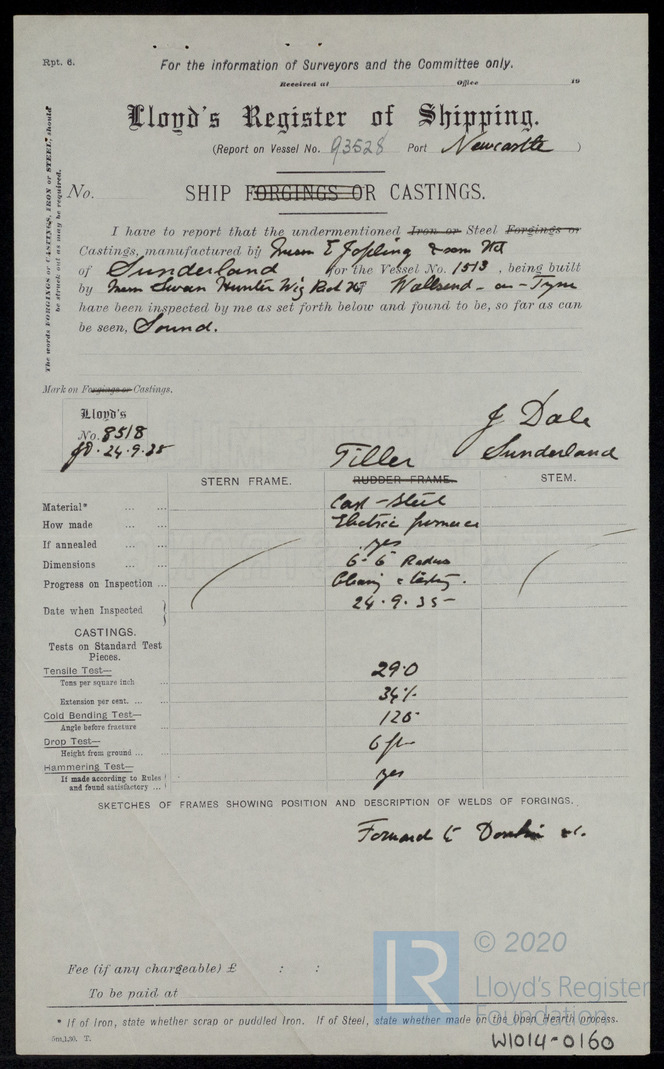 Rpt. 6.
For the information of Surveyors and the Committee only.
Received at Office 19
Lloyd's Register of Shipping.
(Report on Vessel No. 93528 Port Newcastle )
The words FORGINGS or CASTINGS, IRON or STEEL, should
be struck out as may be required.
No.
SHIP FORGINGS OR CASTINGS.
I have to report that the undermentioned Iron or Steel Forgings or
Castings, manufactured by Messrs E Jopling & Sons Ltd
of Sunderland for the Vessel No. 1513, being built
by Messrs Swan Hunter Wig Rich Ltd Wallsend-on-Tyne
have been inspected by me as set forth below and found to be, so far as can
be seen, Sound.
Mark on Forgings or Castings.
Lloyd's
No. 8518
JD. 24.9.35
J Dale
Sunderland
Tiller
STERN FRAME. RUDDER FRAME. STEM.
Material* ... ... Cast-Steel
How made ... ... Electric furnace
If annealed ... ... yes
Dimensions ... ... 6-6 Radius
Progress on Inspection ... & testing.
Date when Inspected 24.9.35
CASTINGS.
Tests on Standard Test
Pieces.
Tensile Test—
Tons per square inch ... 29.0
Extension per cent. ... ... 34%
Cold Bending Test—
Angle before fracture ... 120
Drop Test—
Height from ground ... ... 6 ft
Hammering Test—
If made according to Rules
and found satisfactory ... yes
SKETCHES OF FRAMES SHOWING POSITION AND DESCRIPTION OF WELDS OF FORGINGS.
Forward to Donkin &c.
Fee (if any chargeable) £ : :
To be paid at
* If of Iron, state whether scrap or puddled Iron. If of Steel, state whether made on the Open Hearth process.
5m,1,30. T.
LR
© 2020
Lloyd's Register
Foundation
W1014-0160